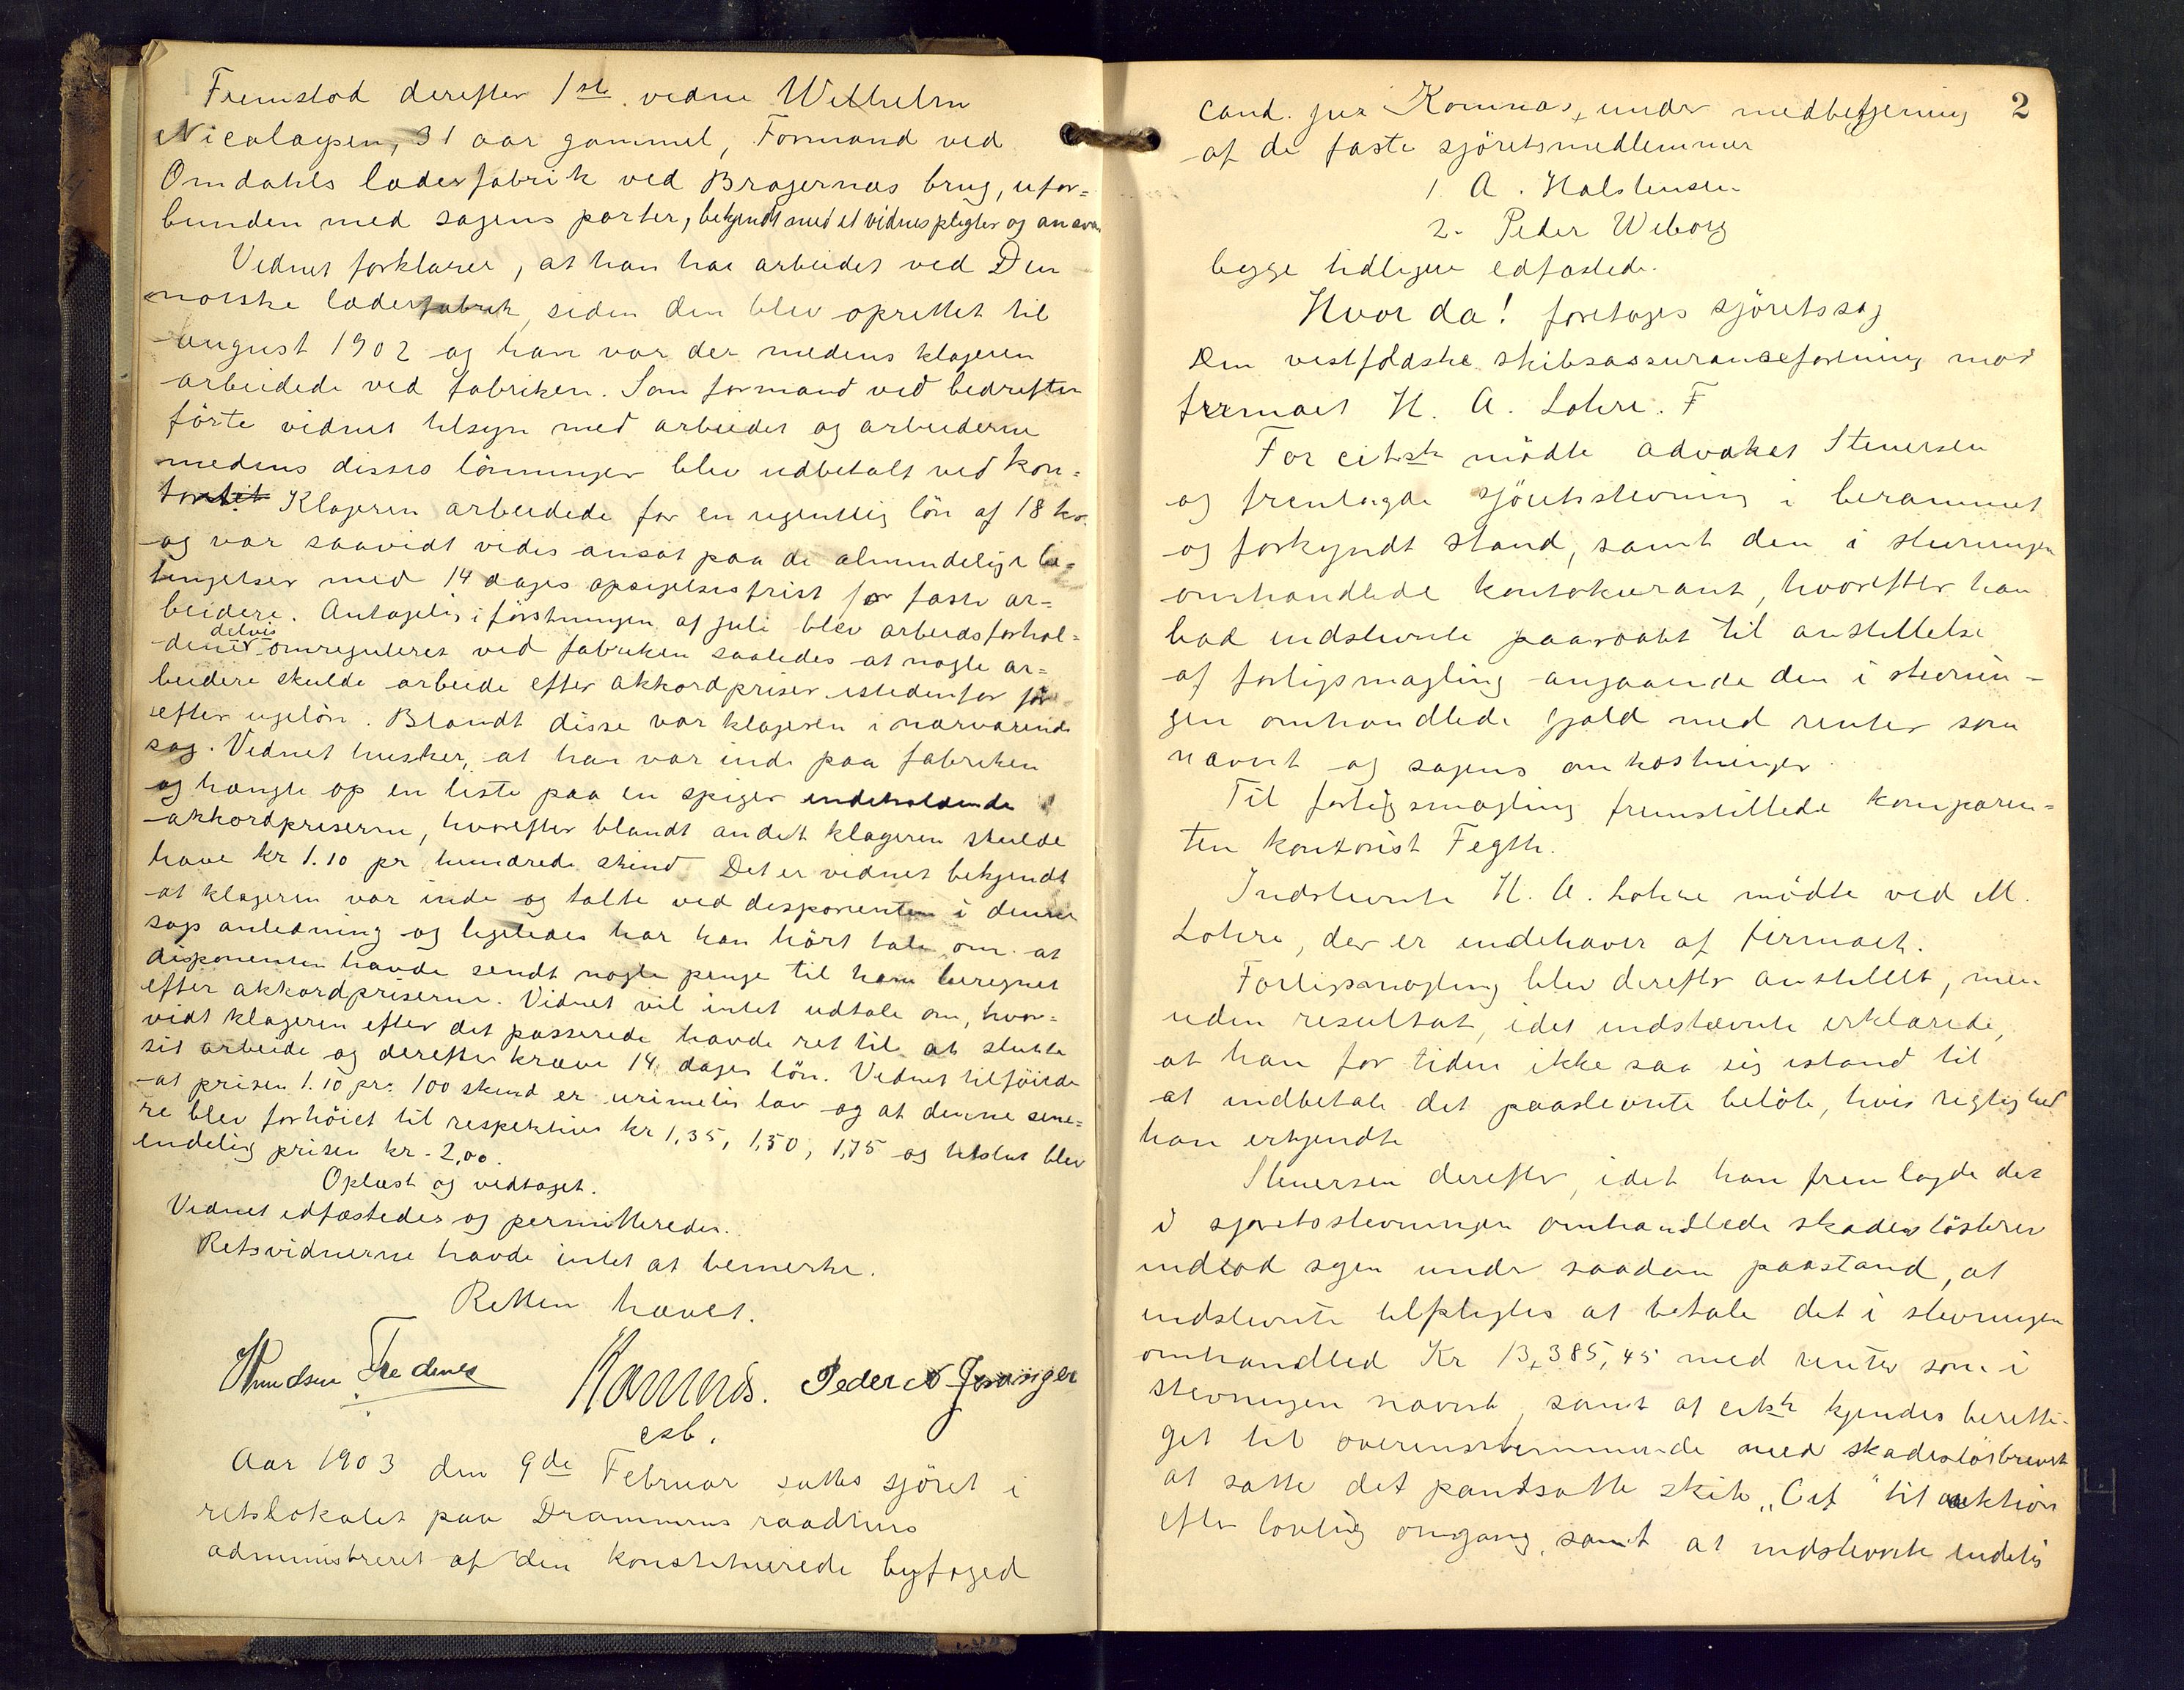 Fremstod derefter 1ste vidne Wilhelm
Nicolaysen, 31 aar gammel, Formand ved
Omdahls læderfabrik ved Bragernæs brug, ufor=
bunden med sagens parter, bekjendt med et vidnes pligter og ansvar
Vidnet forklarer, at han har arbeidet ved Den
norske læderfabrik, siden den blev oprettet til
august 1902 og han var der medens klageren
arbeidede ved fabriken. Som formand ved bedriften
förte vidnet tilsyn med arbeidet og arbeiderne
medens disses lönninger blev udbetalt ved kon=
toret. Klageren arbeidede for en ugentlig lön af 18 kr.
og var saavidt vides ansat paa de almindelige be=
tingelser med 14 dages opsigelsesfrist for faste ar=
beidere. Antagelig i förstningen af juli blev arbeidsforhol=
delvis
dene omreguleret ved fabriken saaledes at nogle ar=
beidere skulde arbeide efter akkordpriser istedenfor för
efter ugelön. Blandt disse var klageren i nærværende
sag. Vidnet husker, at han var inde paa fabriken
og hængte op en liste paa en spiger indeholdende
akkordpriserne, hvorefter blandt andet klageren skulde
have kr 1.10 pr hundrede skind. Det er vidnet bekjendt
at klageren var inde og talte ved disponenten i denne
sags anledning og ligeledes har han hört tale om at
disponenten havde sendt nogle penge til ham beregnet
efter akkordpriserne. Vidnet vil intet udtale om, hvor=
vidt klageren efter det passerede havde ret til at slutte
sit arbeide og derefter kræve 14 dages lön. Vidnet tilföiede
at prisen 1.10 pr. 100 skind er urimelig lav og at denne sene=
re blev forhöiet til respektive kr 1,35, 1,50, 1,75 og tilslut blev
endelig prisen kr. 2,00.
Oplæst og vedtaget.
Vidnet edfæstedes og permitteredes.
Retsvidnerne havde intet at bemerke.
Retten hævet.
Knudsen Frednes Komnæs. Peder N
cst.
Aar 1903 den 9de Februar sattes sjöret i
retslokalet paa Drammens raadhus
administreret af den konstituerede byfoged
2
cand. jur Komnæs, under medbetjening
af de faste sjöretsmedlemmer
1 A. Halstensen
2. Peder Wiborg
begge tidligere edfæstede.
Hvor da! foretoges sjöretssag
Den vestfoldske skibsassuranceforening mod
firmaet H. A. Lohre. F
For citste mödte advokat Steuersen
og fremlagde sjöretsstevning i berammet
og forkyndt stand, samt den i stevningen
omhandlede kontokurant, hvorefter han
bad indstevnte paaraabt til anstillelse
af forligsmægling angaaende den i stevnin-
gen omhandlede gjæld med renter som
nævnt og sagens omkostninger.
Til forligsmægling fremstillede komparen=
ten kontorist Fegth.
Indstevnte H. A. Lohre mödte ved M.
Lohre, der er indehaver af firmaet.
Forligsmægling blev derefter anstillet, men
uden resultat, idet indstævnte erklærede,
at han for tiden ikke saa sig istand til
at indbetale det paastevnte belöb, hvis rigtighed
han erkjendte
Steuersen derefter, idet han fremlagde det
i sjøretsstevningen omhandlede skadeslösbrev
indlod sagen under saadan paastand, at
indstevnte tilpligtes at betale det i stevningen
omhandled Kr 13,385,45 med renter som i
stevningen nævnt, samt at citste kjendes beretti-
get til overensstemmende med skadeslösbrevet
at sætte det pantsatte skib „Cif" til auktion
efter lovlig omgang, samt at indstevnte endelig